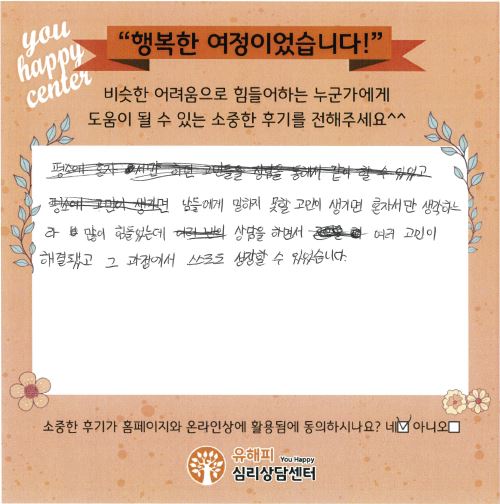 you
happy
center
“행복한 여정이었습니다!”
비슷한 어려움으로 힘들어하는 누군가에게
도움이 될 수 있는 소중한 후기를 전해주세요^^
평소에 혼자 서서만 하던 고민들을 상담을 통해서 같이 할 수 있었고
평소에 고민이 생기면 남들에게 말하지 못할 고민이 생기면 혼자서만 생각하느
라 많이 힘들었는데 상담을 하면서 여러 고민이
해결됐고 그 과정에서 스스로도 성장할 수 있었습니다.
소중한 후기가 홈페이지와 온라인상에 활용됨에 동의하시나요? 네☑ 아니오☐
유해피 You Happy
심리상담센터